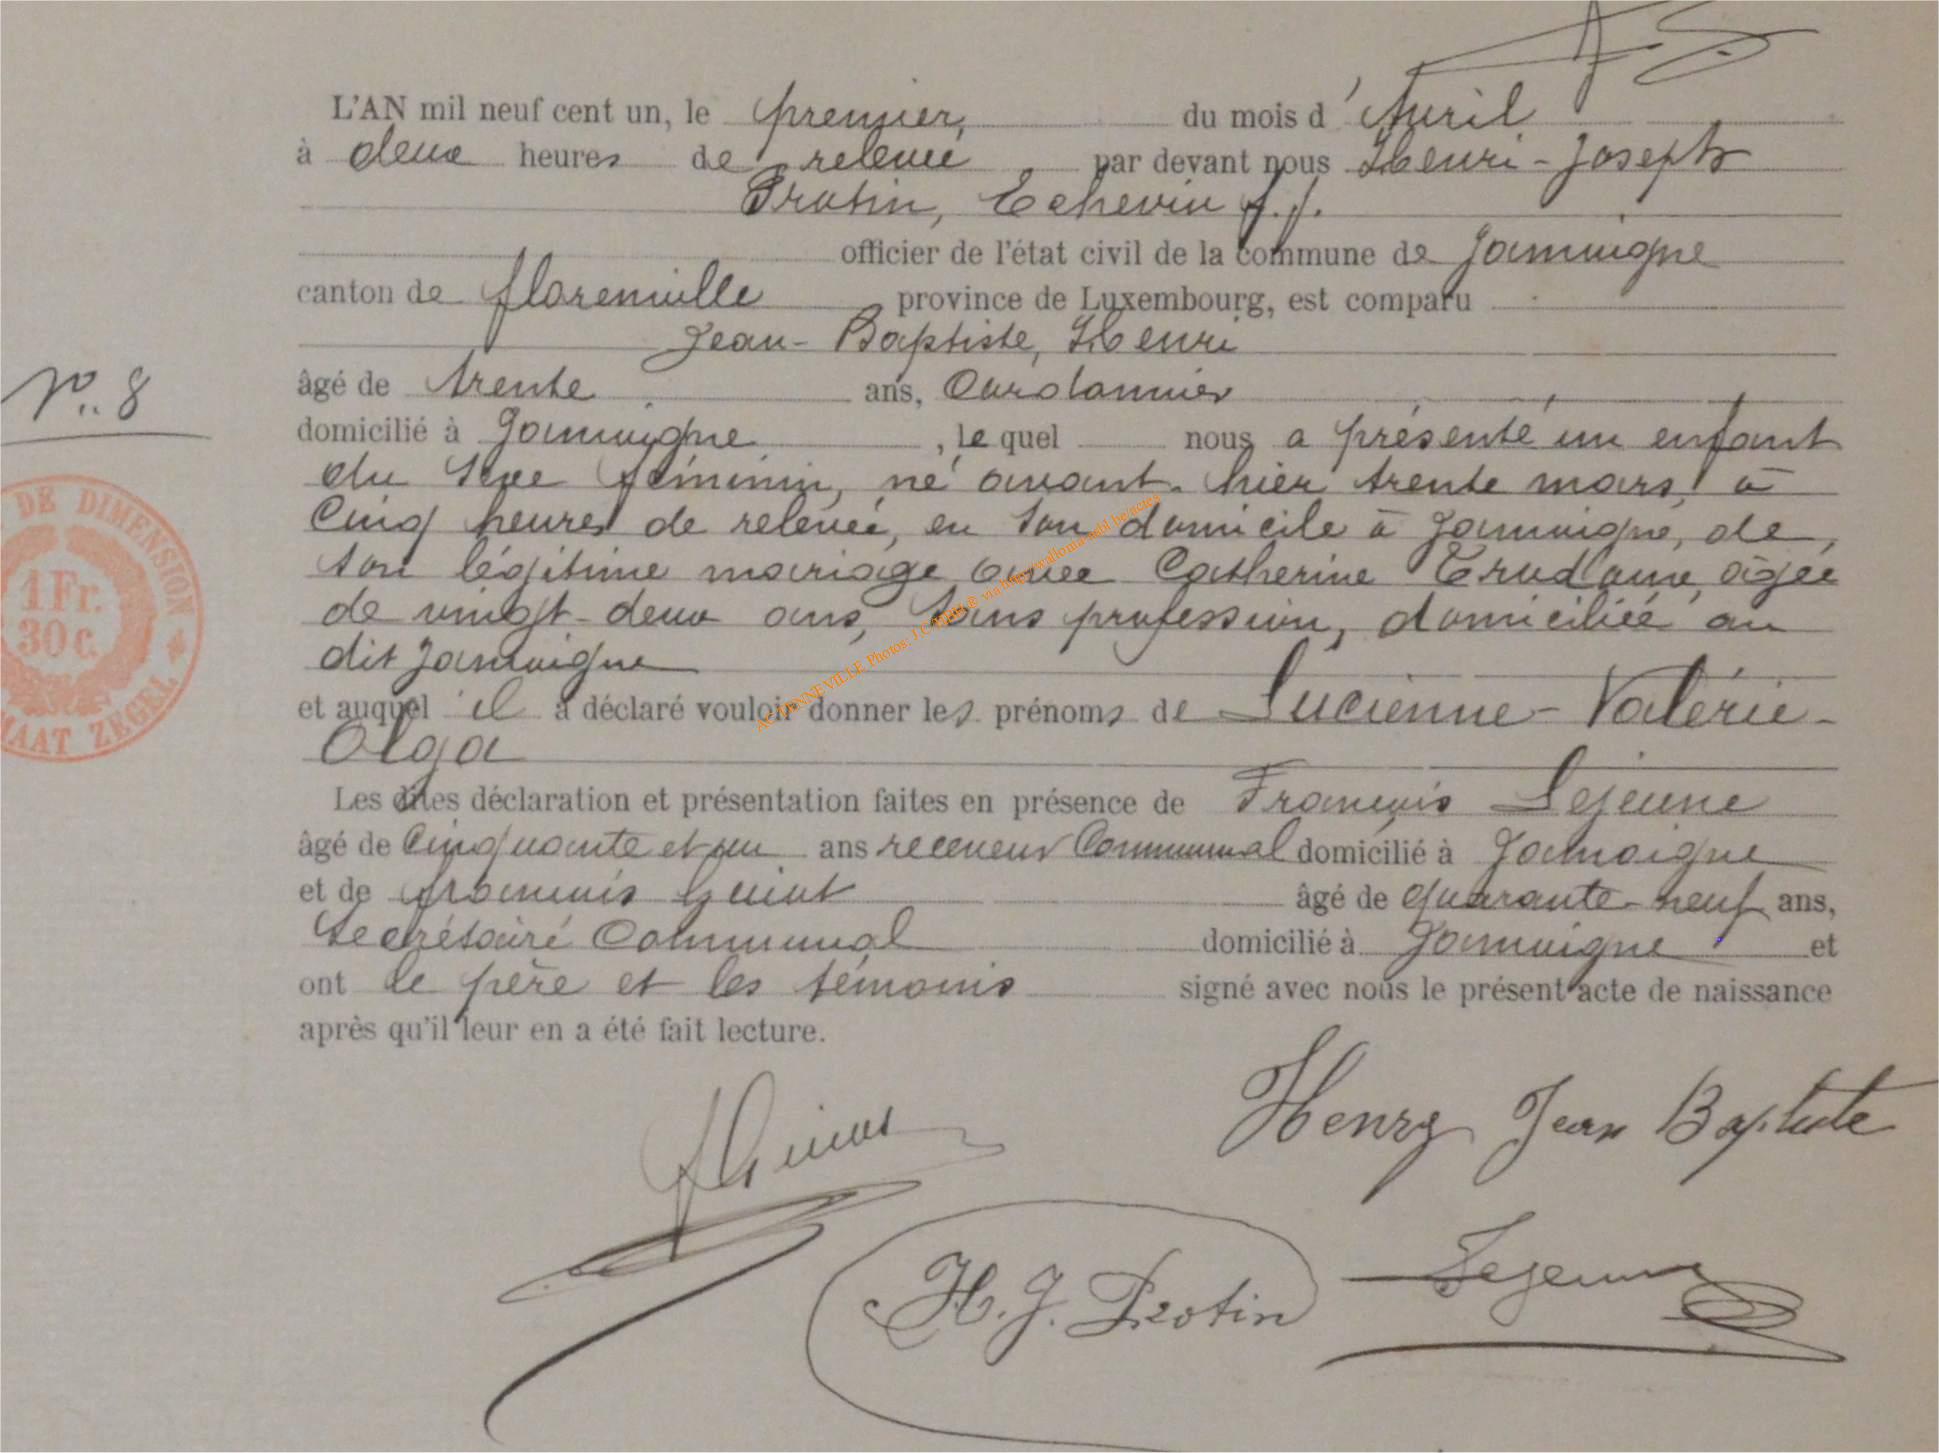 L'AN mil neuf cent un, le premier, du mois d'Avril
à deux heures de relevée par devant nous Henri-Joseph
Protin, Echevin f.f.
officier de l'état civil de la commune de Jamoigne
canton de florenville province de Luxembourg, est comparu
Jean-Baptiste, Henri
âgé de trente ans, Cordonnier
N°. 8
domicilié à Jamoigne, le quel nous a présenté un enfant
du sexe féminin, né avant-hier trente mars, à
Cinq heures de relevée, en son domicile à Jamoigne, de
son légitime mariage avec Catherine âgée
de vingt-deux ans, sans profession, domiciliée au
dit Jamoigne
et auquel il a déclaré vouloir donner les prénoms de Lucienne-Valérie-
Olga
Les dites déclaration et présentation faites en présence de François Lejeune
âgé de Cinquante et un ans receveur Communal domicilié à Jamoigne
et de françois âgé de quarante-neuf ans,
Secrétaire Communal domicilié à Jamoigne et
ont le père et les témoins signé avec nous le présent acte de naissance
après qu'il leur en a été fait lecture.
Henry Jean Baptiste
Lejeune
H. J. Protin
DE DIMENSION
1 Fr.
30 c.
MAAT ZEGEL